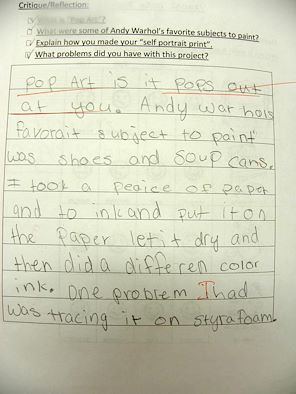 Critique/Reflection:
What is "Pop Art"?
What were some of Andy Warhol's favorite subjects to paint?
Explain how you made your "self portrait print".
What problems did you have with this project?
Pop Art is it pops out
at you. Andy warhols
favorait subject to paint
was shoes and soup cans.
I took a peaice of paper
and to ink and put it on
the paper let it dry and
then did a differen color
ink. One problem I had
was tracing it on styrafoam.